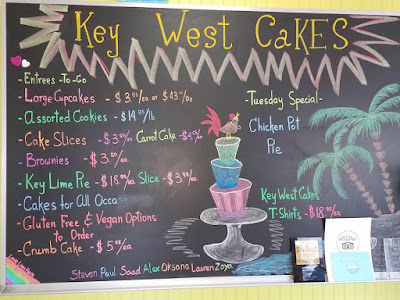 Key West CAKES
- Entrees -To-Go
- Large Cupcakes - $3.95/ea or $43.00/dz
- Assorted Cookies - $14.95/lb
- Cake Slices - $3.95/ea Carrot Cake - $4.95/ea
- Brownies - $3.50/ea
- Key Lime Pie - $18.95/ea Slice - $3.99/ea
- Cakes for All Occas
- Gluten Free & Vegan Options
to Order
- Crumb Cake - $5.95/ea
-Tuesday Special-
Chicken Pot
Pie
Key West Cakes
T-Shirts - $18.95/ea
Steven Paul Saad Alex Oksana Lauren Zoya